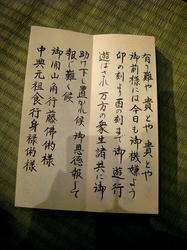 有り難や 貴とや 貴とや
御前様には今日も御機嫌よう
卯の刻より酉の刻まで御遊行
遊ばされ 万方の衆生諸共に御
助け下し置かれ候 御恩徳報して
報じ難く候
御開山角行藤佛俰様
中興元祖食行身禄俰様